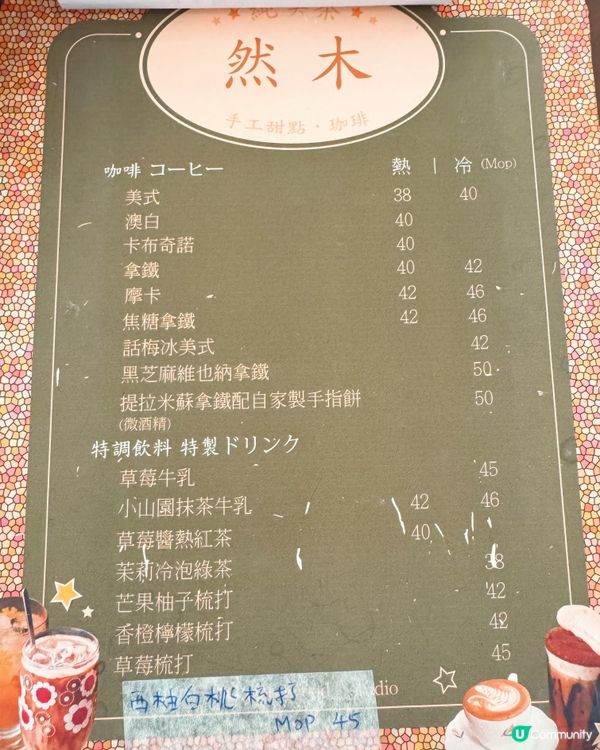 然木
手工甜點·珈琲
咖啡 コーヒー 熱 | 冷 (Mop)
美式 38 40
澳白 40
卡布奇諾 40
拿鐵 40 42
摩卡 42 46
焦糖拿鐵 42 46
話梅冰美式 42
黑芝麻維也納拿鐵 50
提拉米蘇拿鐵配自家製手指餅 50
(微酒精)
特調飲料 特製ドリンク
草莓牛乳 45
小山園抹茶牛乳 42 46
草莓醬熱紅茶 40
茉莉冷泡綠茶 38
芒果柚子梳打 42
香橙檸檬梳打 42
草莓梳打 45
西柚白桃梳打
MOP 45
U Community